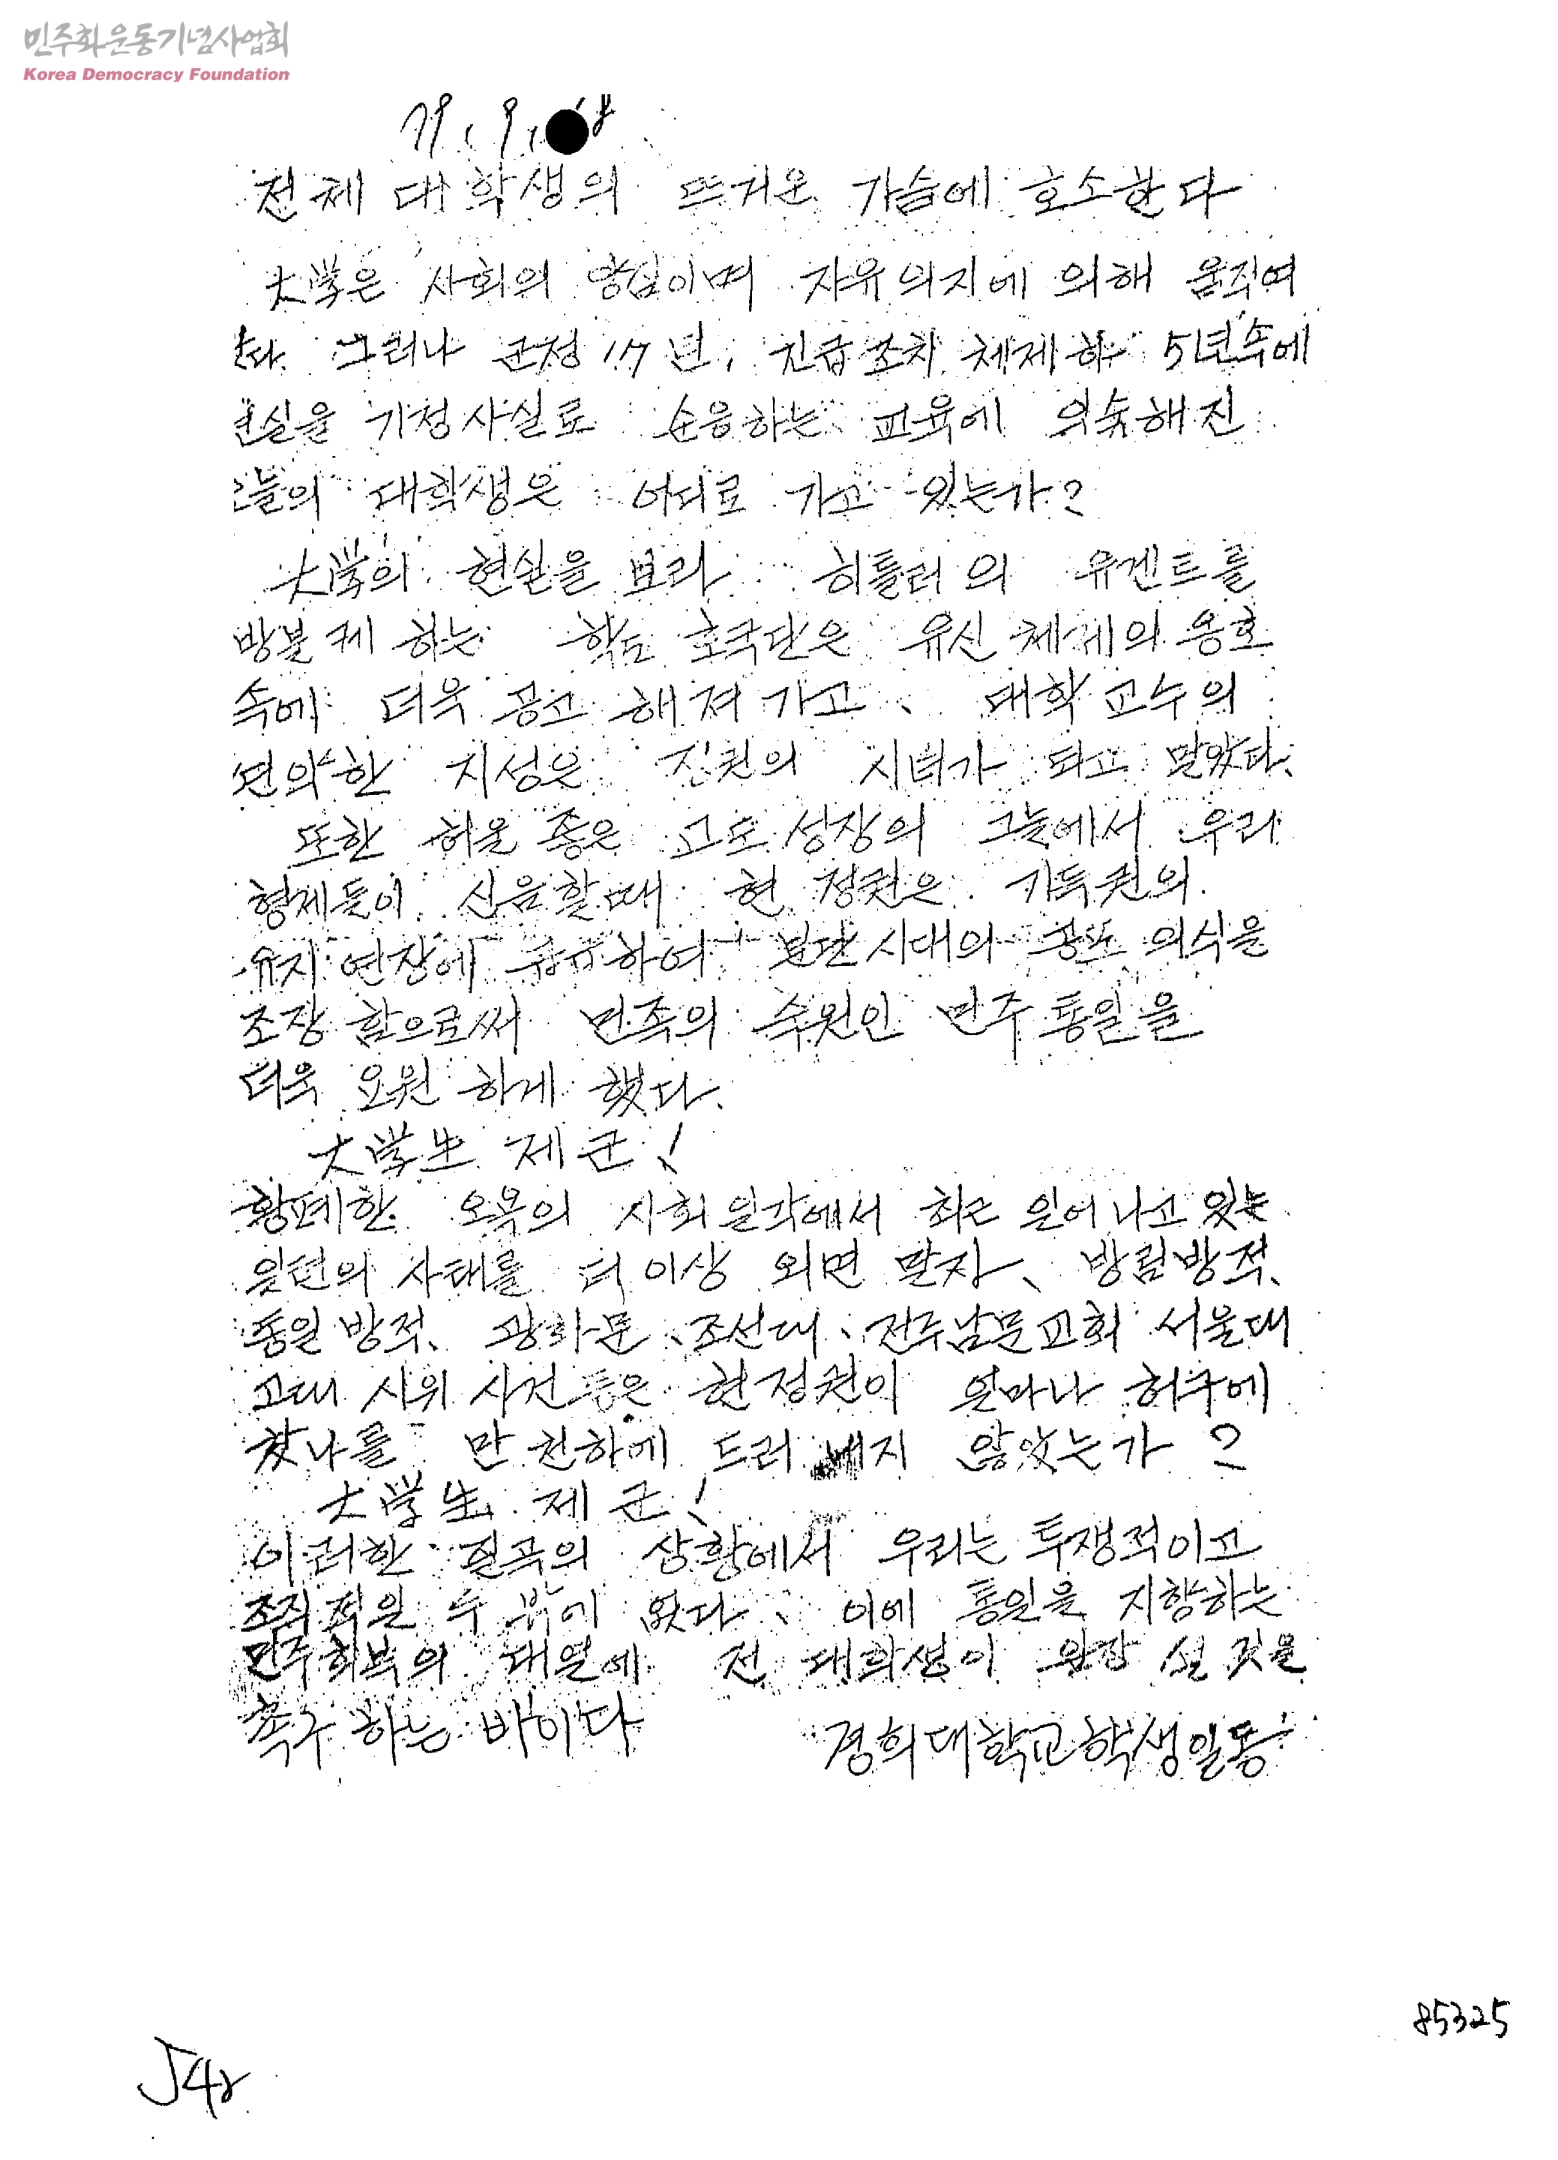 민주화운동기념사업회
Korea Democracy Foundation
79. 9. 18
전체 대학생의 뜨거운 가슴에 호소한다
大学은 사회의 양심이며 자유의지에 의해 움직여
다. 그러나 군정 17년, 긴급조치 체제하 5년속에
현실을 기정사실로 순응하는 교육에 익숙해진
오늘의 대학생은 어디로 가고 있는가?
大学의 현실을 보라 히틀러의 유겐트를
방불케 하는 학도 호국단은 유신 체제의 옹호
속에 더욱 공고 해져 가고, 대학 교수의
연약한 지성은 정권의 시녀가 되고 말았다.
또한 허울 좋은 고도 성장의 그늘에서 우리
형제들이 신음할때 현 정권은 기득권의
유지 연장에 급급하여 분단시대의 공포 의식을
조장 함으로써 민족의 숙원인 민주 통일을
더욱 요원 하게 했다.
大学生 제군!
황폐한 오욕의 사회일각에서 최근 일어나고 있는
일련의 사태를 더 이상 외면 말자, 방림방적,
동일 방적, 광화문, 조선대, 전주남문교회 서울대
고대 시위 사건 등은 현정권이 얼마나 허구에
찼나를 만천하에 드러 내지 않았는가?
大学生 제군!
이러한 질곡의 상황에서 우리는 투쟁적이고
조직적일 수 밖에 없다, 이에 통일을 지향하는
민주회복의 대열에 전 대학생이 앞장 설 것을
촉구 하는 바이다
경희대학교학생일동
85325